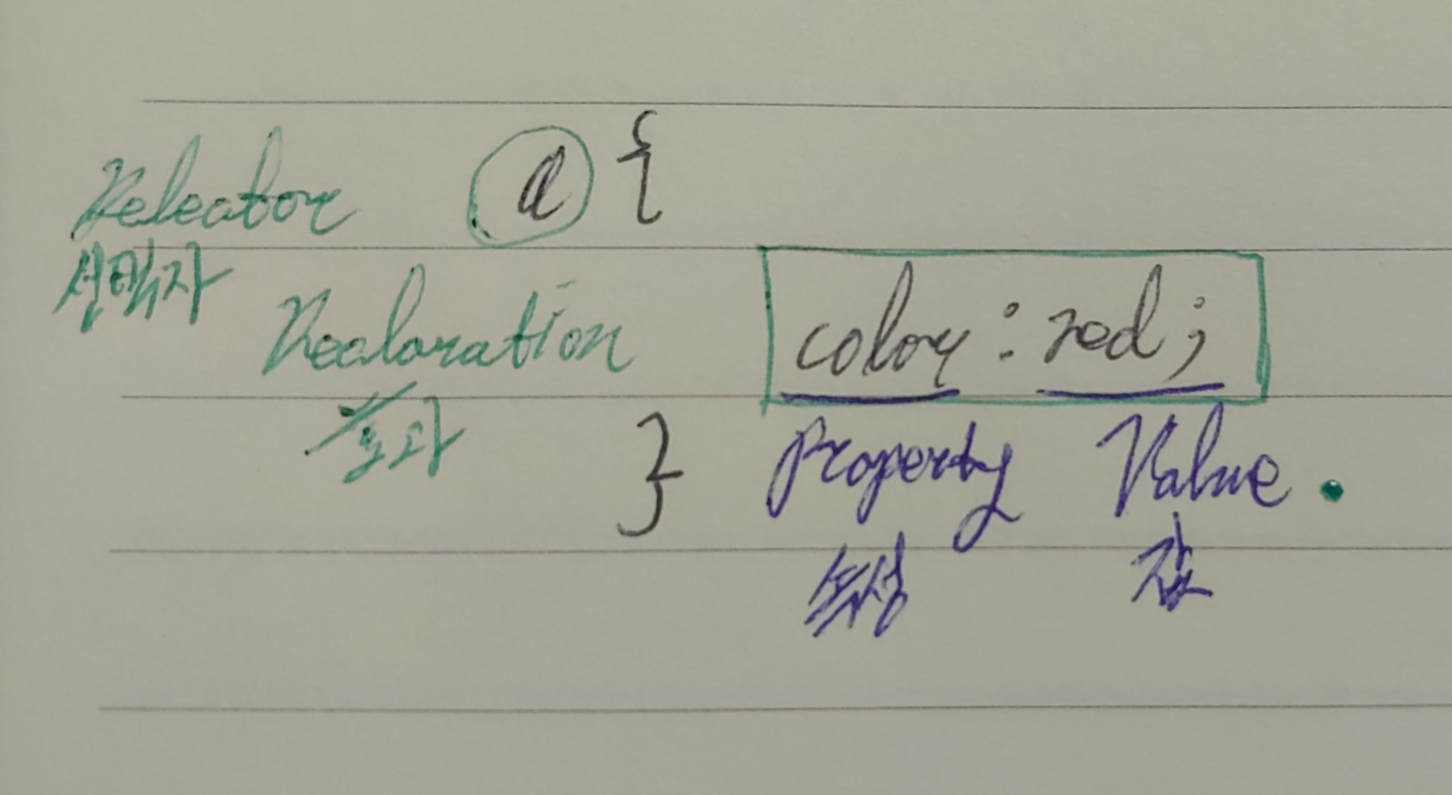 Selector a {
선택자
Declaration color : red ;
효과
} Property Value .
속성 값